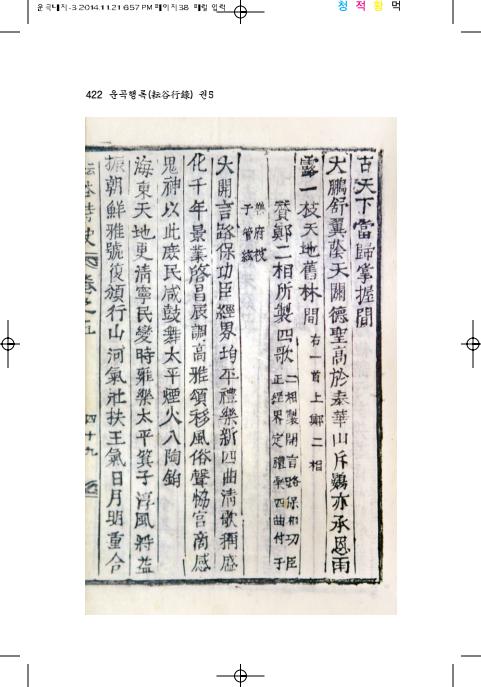 운곡내지-3 2014.11.21 6:57 PM 페이지38 매월 입력
청 적 황 먹
422 운곡행록(耘谷行錄) 권5
古天下當歸掌握間
大鵬舒翼蔭天關德聖高於泰華山斥鷃亦承恩雨
露一枝天地舊林間 右一首上鄭二相
賛鄭二相所製四歌 二相製開言路保相功臣
正經界定禮樂四曲付于
樂府被
于管絃
大開言路保功臣經界均平禮樂新四曲淸歌稱盛
化千年景業啓昌辰調高雅頌移風俗聲恊宮商感
鬼神以此庶民咸鼓舞太平煙火入陶鈞
海東天地更清寧民變時雍樂太平箕子浮風將益
振朝鮮雅號復頒行山河氣壯扶王氣日月明重合
卷之五
四十九